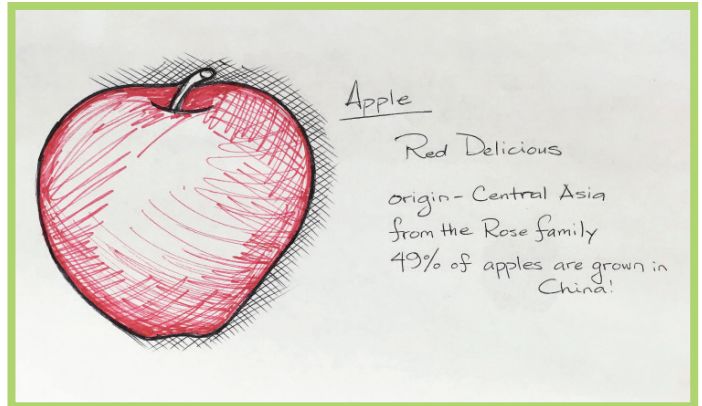 Apple
Red Delicious
origin - Central Asia
from the Rose family
49% of apples are grown in
China!